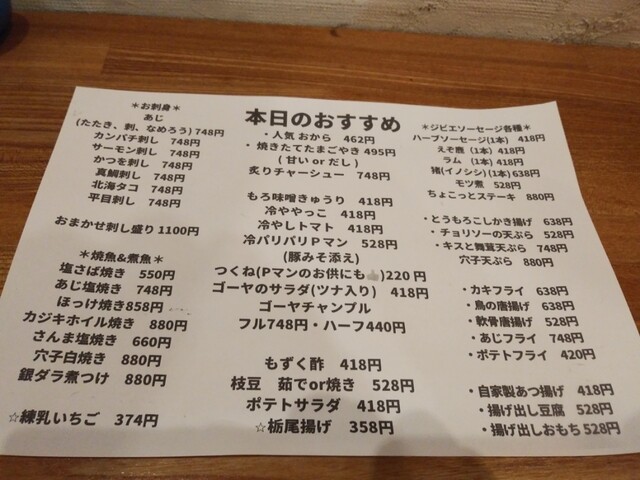 ＊お刺身＊
あじ
(たたき、刺、なめろう) 748円
カンパチ刺し 748円
サーモン刺し 748円
かつを刺し 748円
真鯛刺し 748円
北海タコ 748円
平目刺し 748円
おまかせ刺し盛り 1100円
＊焼魚&煮魚＊
塩さば焼き 550円
あじ塩焼き 748円
ほっけ焼き858円
カジキホイル焼き 880円
さんま塩焼き 660円
穴子白焼き 880円
銀ダラ煮つけ 880円
☆練乳いちご 374円
本日のおすすめ
・人気 おから 462円
・焼きたてたまごやき 495円
( 甘い or だし )
炙りチャーシュー 748円
もろ味噌きゅうり 418円
冷ややっこ 418円
冷やしトマト 418円
冷パリパリPマン 528円
(豚みそ添え)
つくね(Pマンのお供にも👍)220 円
ゴーヤのサラダ(ツナ入り) 418円
ゴーヤチャンプル
フル748円・ハーフ440円
もずく酢 418円
枝豆 茹でor焼き 528円
ポテトサラダ 418円
☆栃尾揚げ 358円
＊ジビエソーセージ各種＊
ハーブソーセージ(1本) 418円
えぞ鹿 (1本) 418円
ラム (1本) 418円
猪(イノシシ)(1本) 638円
モツ煮 528円
ちょこっとステーキ 880円
・とうもろこしかき揚げ 638円
・チョリソーの天ぷら 528円
・キスと舞茸天ぷら 748円
穴子天ぷら 880円
・カキフライ 638円
・鳥の唐揚げ 638円
・軟骨唐揚げ 528円
・あじフライ 748円
・ポテトフライ 420円
・自家製あつ揚げ 418円
・揚げ出し豆腐 528円
・揚げ出しおもち 528円